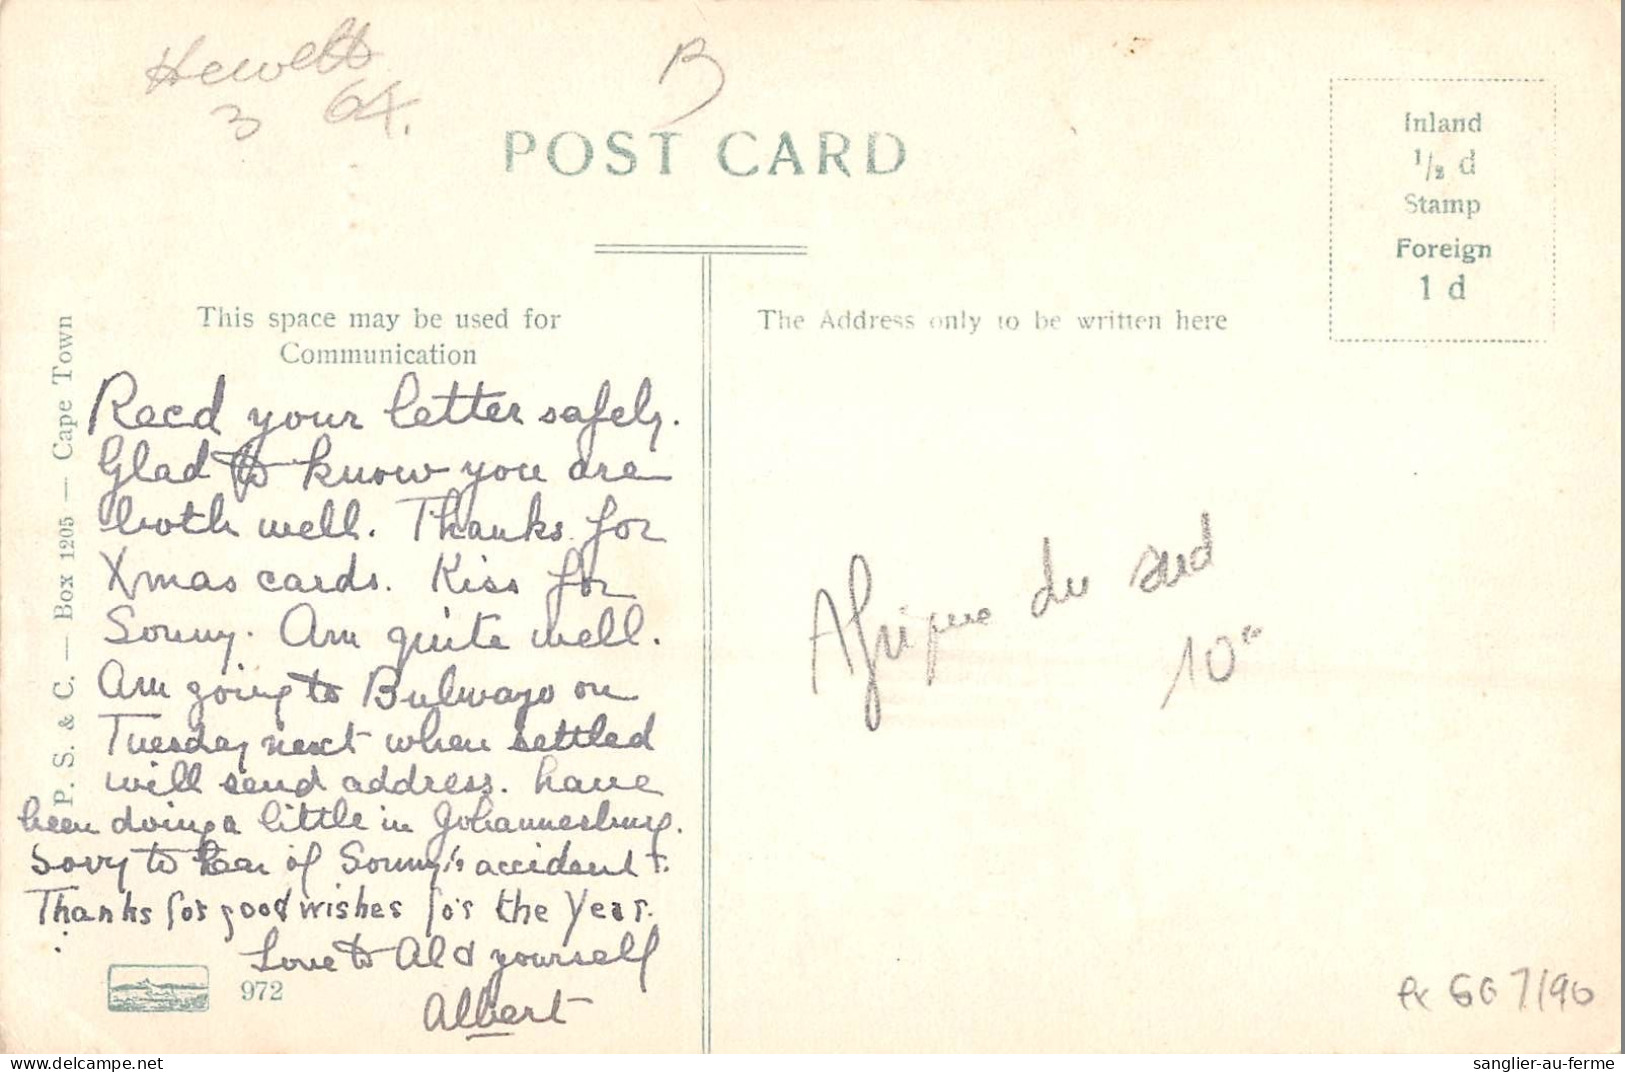 Hewett
3 64.
B
POST CARD
Inland
1/2 d
Stamp
Foreign
1 d
P. S. & C. — Box 1205 — Cape Town
This space may be used for
Communication
The Address only to be written here
Recd your letter safely.
Glad to know you are
both well. Thanks for
Xmas cards. Kiss for
Sonny. Am quite well.
Am going to Bulwayo on
Tuesday next when settled
will send address. have
been doing a little in Johannesburg.
Sorry to hear of Sonny's accident
Thanks for good wishes for the Year.
Love to Al & yourself
Albert
972
Afrique du sud
10
667/90
sanglier-au-ferme